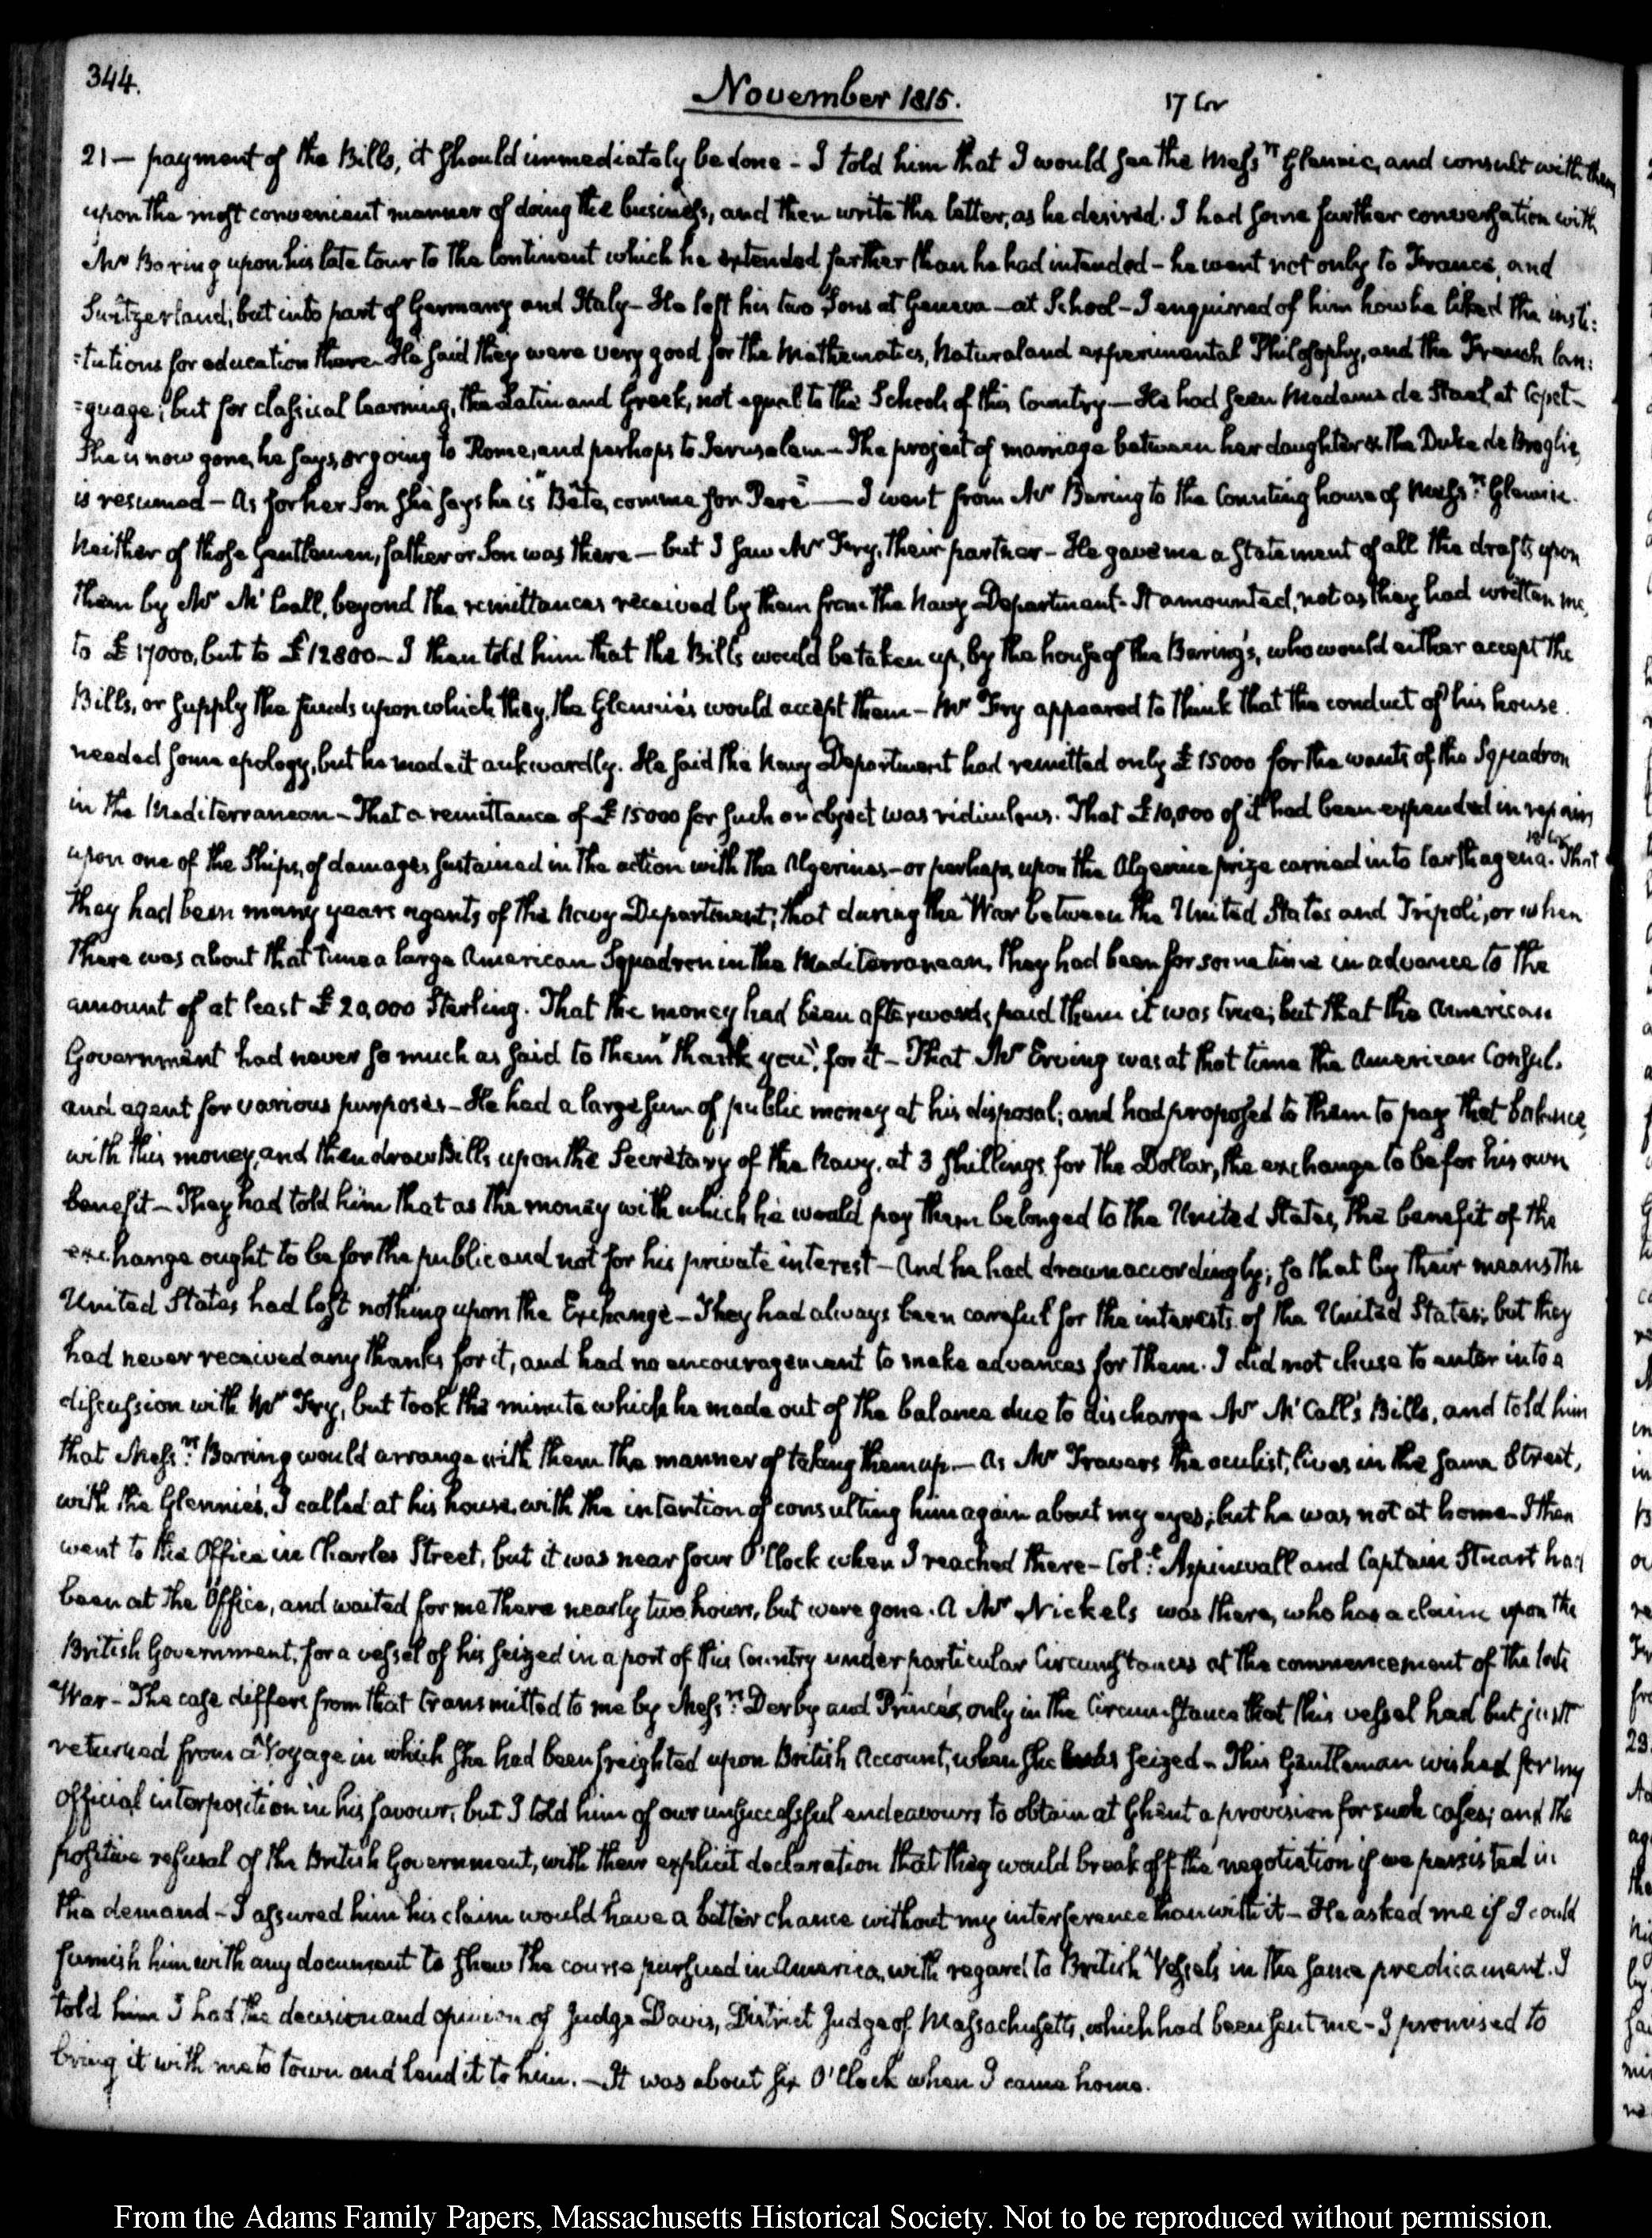 344.
November 1815.
21— payment of the Bills, it should immediately be done - I told him that I would see the Messrs Glennie, and consult with them
upon the most convenient manner of doing the business, and then write the letter, as he desired. I had some further conversation with
Mr Baring upon his late tour to the Continent which he extended farther than he had intended - he went not only to France, and
Switzerland; but into part of Germany and Italy - He left his two Sons at Geneva - at School - I enquired of him how he liked the insti:
=tutions for education there - He said they were very good for the Mathematics, Natural and experimental Philosophy, and the French lan:
=guage; but for classical learning, the Latin and Greek, not equal to the Schools of this Country — He had seen Madame de Stael, at Copet -
She is now gone, he says, or going to Rome, and perhaps to Jerusalem - The project of marriage between her daughter & the Duke de Broglie,
is resumed - As for her Son she says he is "Bête, comme son Pere" — I went from Mr Baring to the Counting house of Messrs Glennie.
Neither of those Gentlemen, father or Son was there — but I saw Mr Fry, their partner - He gave me a statement of all the drafts upon
them by Mr McCall, beyond the remittances received by them from the Navy Department. It amounted, not as they had written me,
to £17000, but to £12800 - I then told him that the Bills would be taken up, by the house of the Baring's, who would either accept the
Bills, or supply the funds upon which they, the Glennie's would accept them - Mr Fry appeared to think that the conduct of his house
needed some apology, but he made it aukwardly. He said the Navy Department had remitted only £15000 for the wants of the Squadron
in the Mediterranean - That a remittance of £15000 for such an object was ridiculous. That £10,000 of it had been expended in repairs
upon one of the Ships, of damages sustained in the action with the Algerines - or perhaps upon the Algerine prize carried into Carthagena. That
they had been many years agents of the Navy Department; that during the War between the United States and Tripoli, or when
there was about that time a large American Squadron in the Mediterranean, they had been for some time in advance to the
amount of at least £20,000 Sterling. That the money had been afterwards paid them it was true; but that the American
Government had never so much as said to them "thank you", for it - That Mr Erving was at that time the American Consul,
and agent for various purposes - He had a large sum of public money at his disposal; and had proposed to them to pay that balance,
with this money, and then draw Bills upon the Secretary of the Navy, at 3 shillings for the Dollar, the exchange to be for his own
benefit - They had told him that as the money with which he would pay them belonged to the United States, the benefit of the
exchange ought to be for the public and not for his private interest - And he had drawn accordingly; so that by their means the
United States had lost nothing upon the Exchange - They had always been careful for the interests of the United States; but they
had never received any thanks for it, and had no encouragement to make advances for them. I did not chuse to enter into a
discussion with Mr Fry, but took the minute which he made out of the balance due to discharge Mr McCall's Bills, and told him
that Messrs Baring would arrange with them the manner of taking them up. — As Mr Travers the oculist, lives in the same Street,
with the Glennie's, I called at his house, with the intention of consulting him again about my eyes; but he was not at home - I then
went to the Office in Charles Street, but it was near four O'Clock when I reached there - Colt Aspinwall and Captain Stuart had
been at the Office, and waited for me there nearly two hours, but were gone. A Mr Nickels was there, who has a claim upon the
British Government, for a vessel of his seized in a port of this Country under particular Circumstances at the commencement of the late
War - The case differs from that transmitted to me by Messrs Derby and Prince's, only in the Circumstance that this vessel had but just
returned from a Voyage in which she had been freighted upon British Account, when she was seized - This Gentleman wished for my
official interposition in his favour; but I told him of our unsuccessful endeavours to obtain at Ghent a provision for such cases; and the
positive refusal of the British Government, with their explicit declaration that they would break off the negotiation if we persisted in
the demand - I assured him his claim would have a better chance without my interference than with it - He asked me if I could
furnish him with any document to shew the course pursued in America, with regard to British Vessels in the same predicament. I
told him I had the decision and opinion of Judge Davis, District Judge of Massachusetts, which had been sent me - I promised to
bring it with me to town and lend it to him. - It was about six O'Clock when I came home.
From the Adams Family Papers, Massachusetts Historical Society. Not to be reproduced without permission.